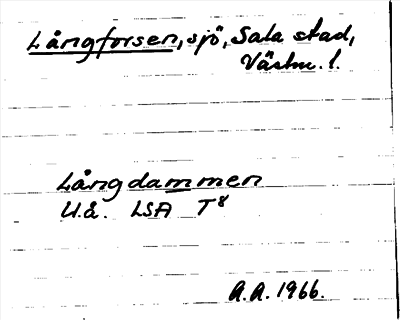 Långforsen, sjö, Sala stad,
Västm. l.
Långdammen
U.å. LSA T8
A.A. 1966.